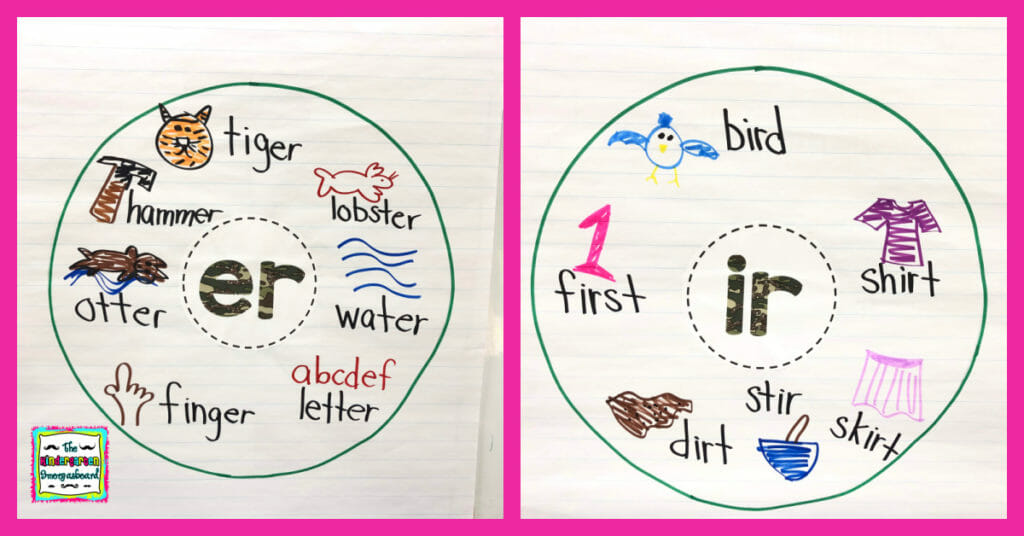 tiger
hammer
lobster
er
otter
water
finger
abcdef
letter
The
Kindergarten
Smorgasboard
bird
1
first
ir
shirt
stir
dirt
skirt